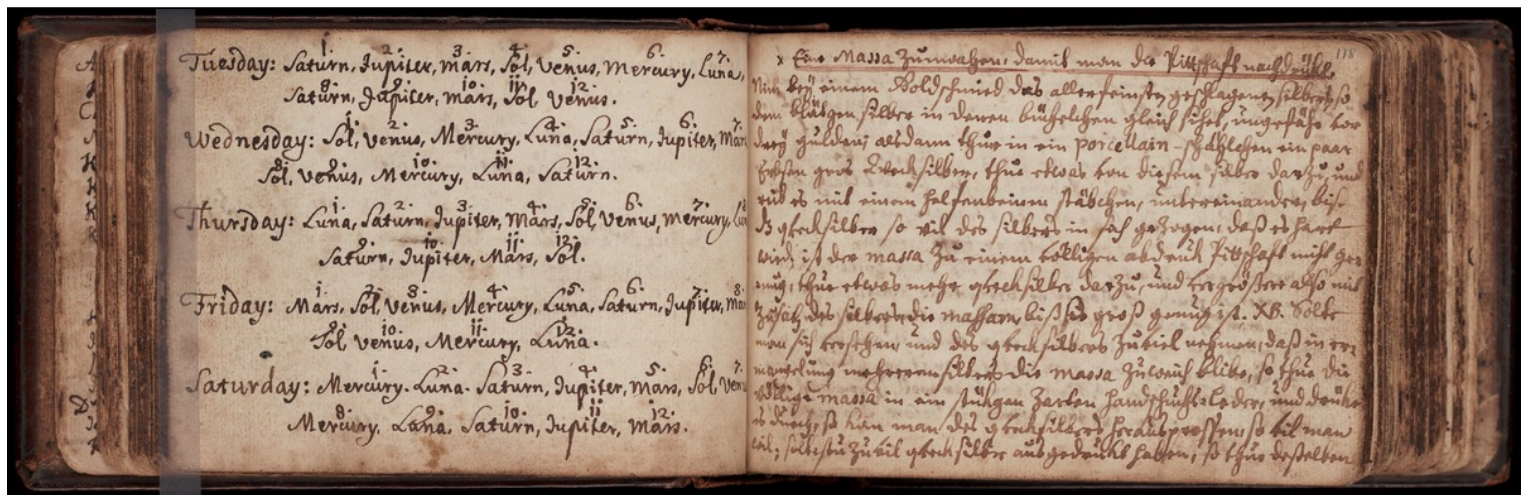 1. 2. 3. 4. 5. 6. 7.
Tuesday: Saturn, Jupiter, mars, Sol, Venus, Mercury, Luna,
8. 9. 10. 11. 12.
Saturn, Jupiter, mars, Sol, Venus.
1. 2. 3. 4. 5. 6. 7.
Wednesday: Sol, Venus, Mercury, Luna, Saturn, Jupiter, Mars
8. 9. 10. 11. 12.
Sol, Venus, Mercury, Luna, Saturn.
1. 2. 3. 4. 5. 6. 7.
Thursday: Luna, Saturn, Jupiter, Mars, Sol, Venus, Mercury,
9. 10. 11. 12.
Saturn, Jupiter, Mars, Sol.
1. 2. 3. 4. 5. 6. 7. 8.
Friday: Mars, Sol, Venus, Mercury, Luna, Saturn, Jupiter,
9. 10. 11. 12.
Sol, Venus, Mercury, Luna.
1. 2. 3. 4. 5. 6. 7.
Saturday: Mercury. Luna. Saturn, Jupiter, Mars, Sol,
8. 9. 10. 11. 12.
Mercury, Luna, Saturn, Jupiter, Mars.
118
Eine Massa Zumachen, damit man die Pittschaft nachdrükt.
Nim bey einem Goldschmied das allerfeinste geschlagene silber, so
den blätgen silber in denen büchelchen gleich sihet, ungefähr vor
drey gulden; alsdann thue in ein porcellain-schählchen ein paar
Erbsen gros Quecksilber, thue etwas von diesem silber darzu, und
rühr es mit einem helfenbeinen stäbchen, untereinander, biß
dz quecksilber so vil des silbers in sich gezogen, daß es hart
wird; ist der massa zu einem völligen abdruk Pittschaft nicht ge=
nug, thue etwas mehr quecksilber darzu, und vergrößere also mit
Zusatz des silbers die massam, biß sie groß genug ist. NB. Solte
man sich versehen, und des quecksilbers zuviel nehmen, daß in er=
mangelung mehreren silbers die massa zu weich blibe, so thue die
völlige massa in ein stükgen zarten handschuhs-leder, und drüke
es durch, so kan man des quecksilbers herauspressen, so vil man
wil; soltestu zuvil quecksilber ausgedrukt haben, so thue desselben